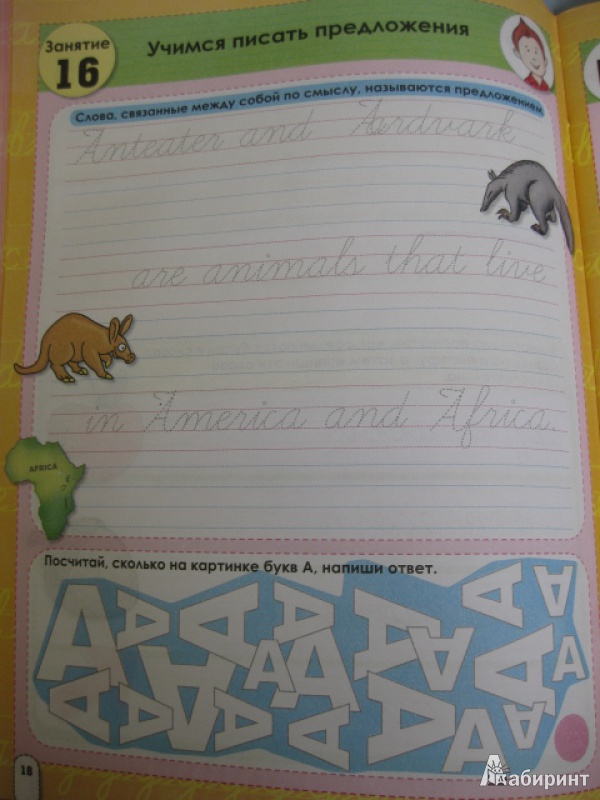 Занятие
16
Учимся писать предложения
Слова, связанные между собой по смыслу, называются предложением.
Anteater and Aardvark
are animals that live
in America and Africa.
AFRICA
Посчитай, сколько на картинке букв А, напиши ответ.
18
Лабиринт